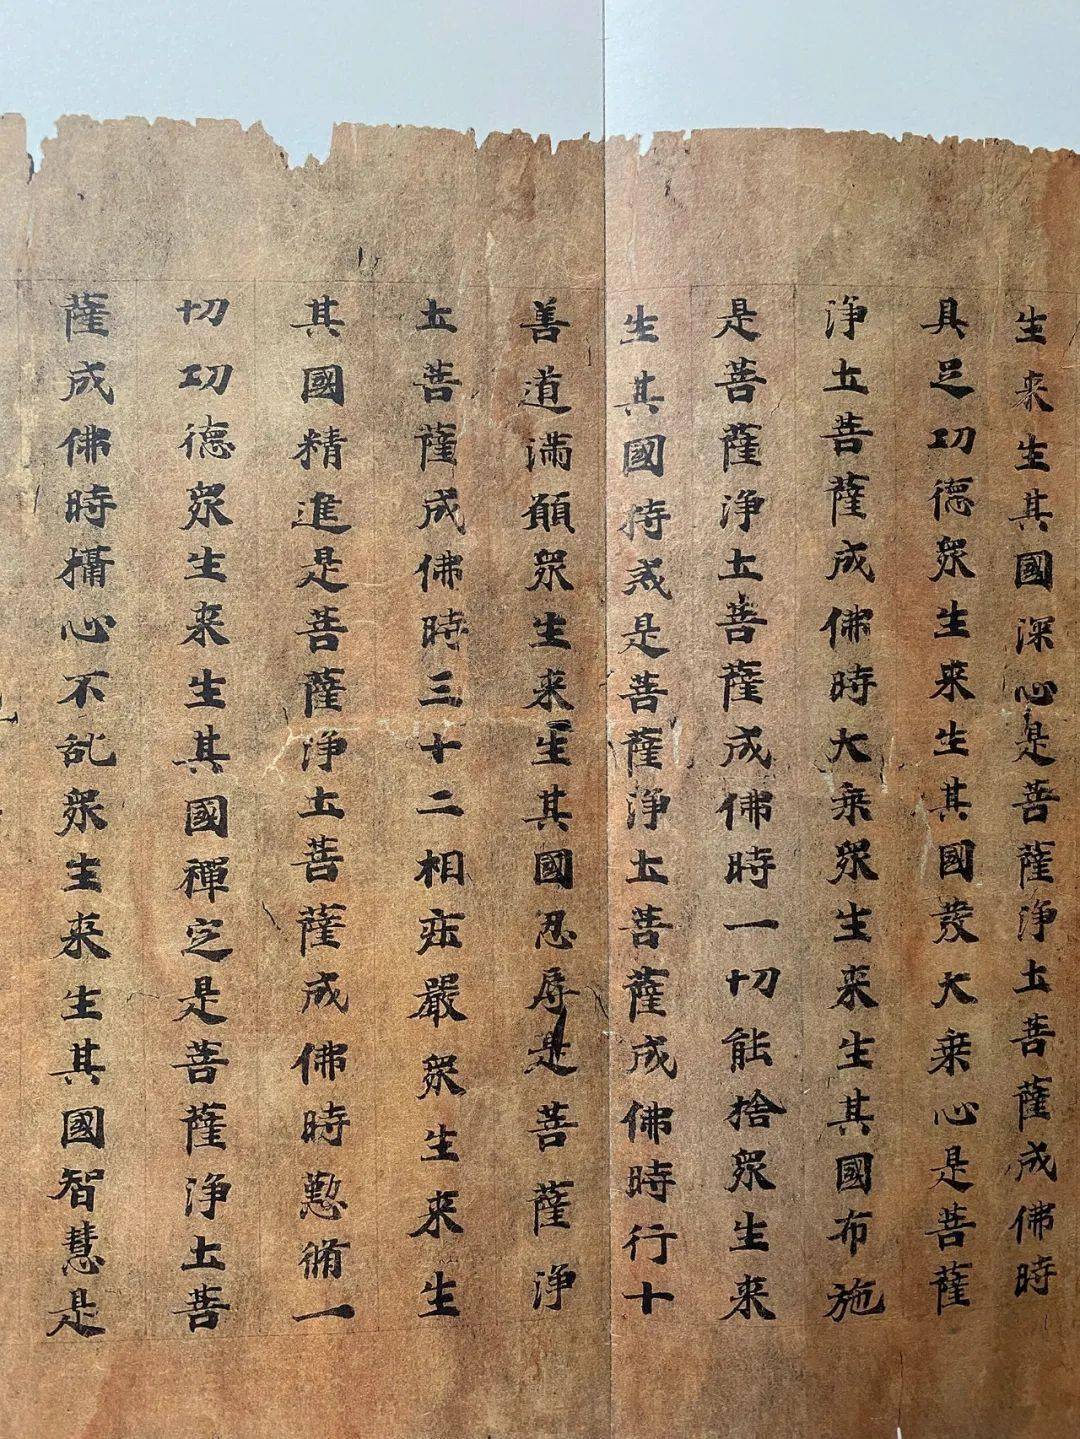 生来生其國深心是菩薩浄土菩薩成佛時
具足功德衆生来生其國發大乗心是菩薩
浄土菩薩成佛時大乗衆生来生其國布施
是菩薩浄土菩薩成佛時一切能捨衆生来
生其國持戒是菩薩浄土菩薩成佛時行十
善道滿願衆生来生其國忍辱是菩薩浄
土菩薩成佛時三十二相莊嚴衆生来生
其國精進是菩薩浄土菩薩成佛時懃脩一
切功德衆生来生其國禪定是菩薩浄土菩
薩成佛時攝心不乱衆生来生其國智慧是